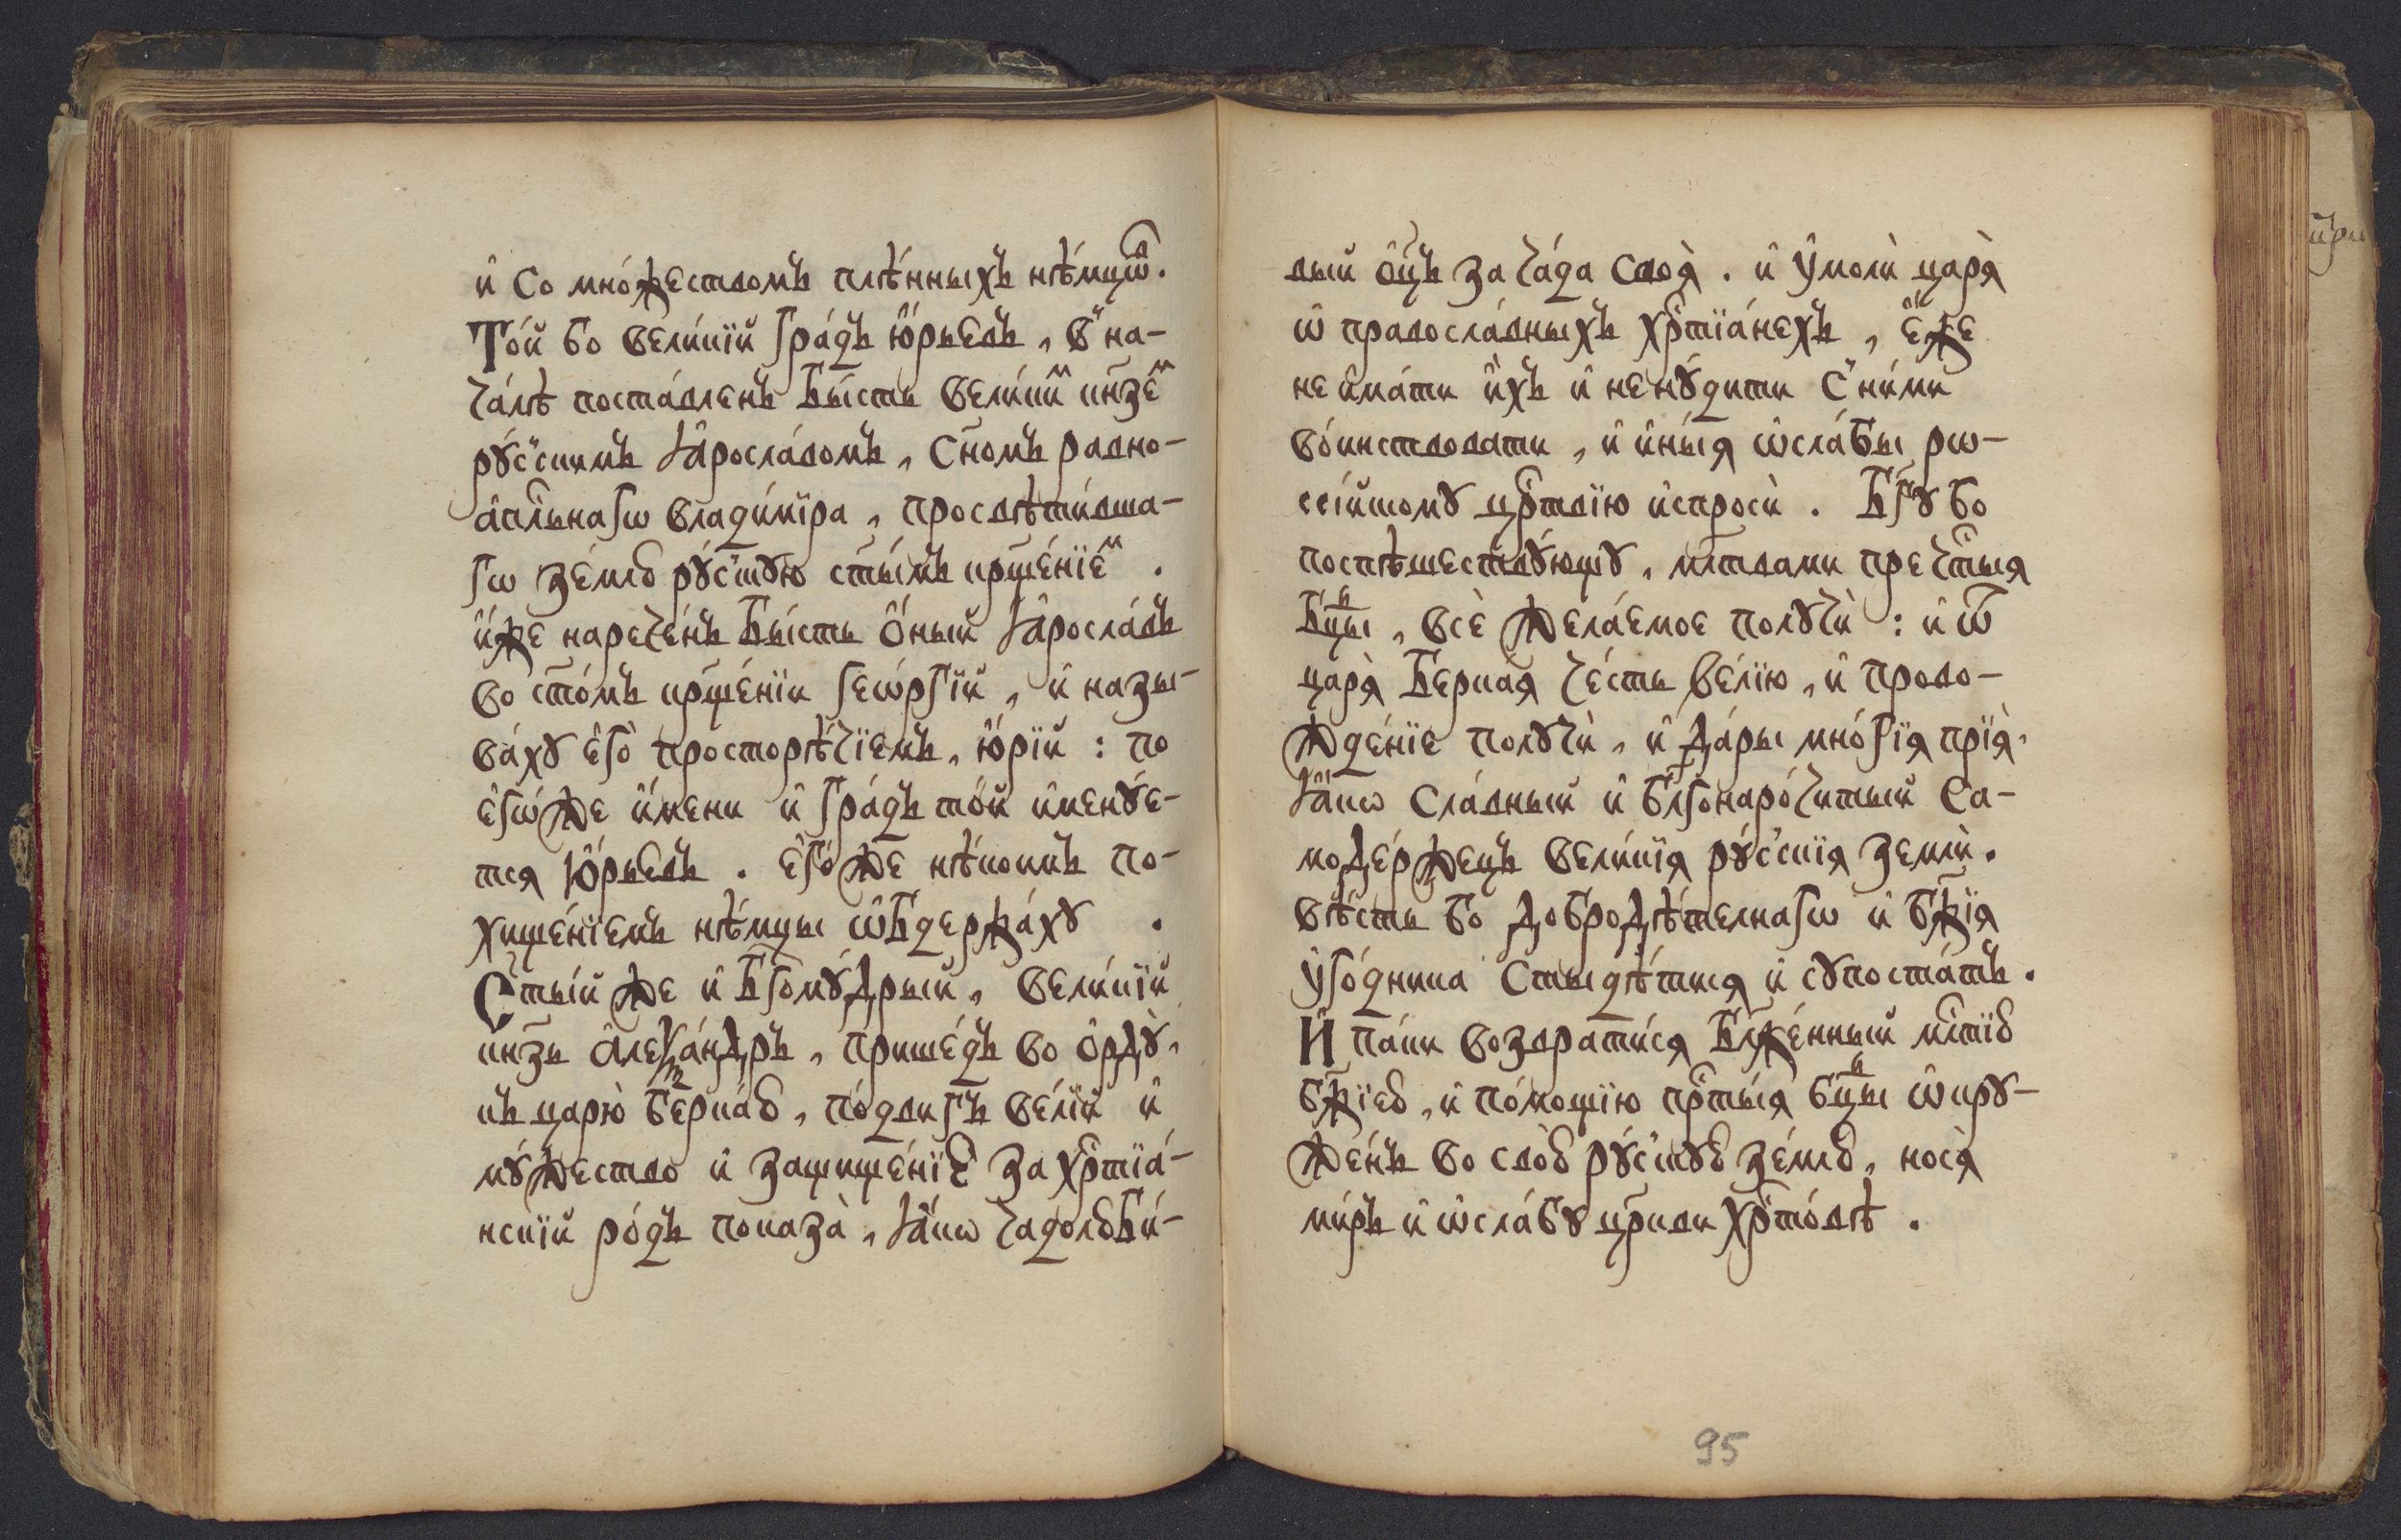 и҆ со мно́жествомъ плѣ́нныхъ нѣ́мцѡⷡ҇.
То́й бо вели́кїй гра́дъ ю҆́рьевъ, в̾ на-
ча́лѣ поста́вленъ бы́сть вели́киⷨ кн҃зеⷨ
рꙋ́с̾скимъ ꙗ҆росла́вомъ, сн҃омъ равно-
а҆пⷭ҇льнагѡ влади́мїра, просвѣти́вша-
гѡ зе́млю рꙋ́с̾скꙋю ст҃ы́мъ крⷳ҇е́нїеⷨ.
и҆́же нарече́нъ бы́сть ѻ҆́ный ꙗ҆росла́въ
во ст҃о́мъ крⷳ҇е́нїи геѡ́ргїй, и҆ назы-
ва́хꙋ є҆го̀ просторѣ́чїемъ, ю҆́рїй : по
є҆гѡ́же и҆́мени и҆ гра́дъ то́й и҆менꙋ́е-
тся ю҆́рьевъ. є҆го́же нѣ́коимъ по-
хище́нїемъ нѣ́мцы ѡ҆бдержа́хꙋ.
Ст҃ы́й же и҆ бг҃омꙋ́дрый, вели́кїй
кн҃зь а҆леѯа́ндръ, прише́дъ во ѻ҆рдꙋ̀,
къ царю̀ берка́ю, по́двигъ ве́лїй и҆
мꙋ́жество и҆ защище́нїе за хрⷭ҇тїа́-
нскїй ро́дъ показа̀, ꙗ҆́кѡ чадолюби́-
вый ѻ҆ц҃ъ за ча́да своѧ̀. и҆ ᲂу҆молѝ царѧ̀
ѡ҆ правосла́вныхъ хрⷭ҇тїа́нехъ, є҆́же
не и҆ма́ти и҆̀хъ и҆ не нꙋ́дити с̾ ни́ми
во́инствовати, и҆ и҆ны́я ѡ҆сла́бы рѡ-
ссі́йскомꙋ црⷭ҇твїю и҆спросѝ. Бг҃ꙋ бо
поспѣшествꙋ́ющꙋ, мл҃твами пречⷭ҇тыя
Бц҃ы, всѐ жела́емое полꙋчѝ : и҆ ѿ
царѧ̀ Берка́я че́сть ве́лїю, и҆ прово-
жде́нїе полꙋчѝ, и҆ да́ры мно́гїя прїѧ̀.
ꙗ҆́кѡ сла́вный и҆ бл҃гонаро́читый са-
моде́ржецъ вели́кїя рꙋ́с̾скїя землѝ.
вѣ́сть бо добродѣ́телнагѡ и҆ бж҃їя
ᲂу҆го́дника стыдѣ́тися и҆ сꙋпоста́тъ.
И҆ па́ки возврати́ся бл҃же́нный млⷭ҇тїю
бж҃їею, и҆ по́мощїю прⷭ҇ты́я бц҃ы ѡ҆крꙋ-
же́нъ во свою̀ рꙋ́с̾скꙋю зе́млю, носѧ̀
ми́ръ и҆ ѡ҆сла́бꙋ цр҃кви хрⷭ҇то́вѣ.
95